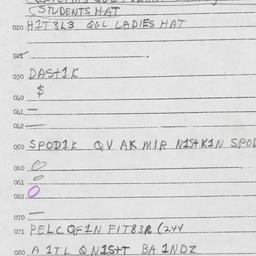 STUDENTS HAT
020 H1T3L3 QGL LADIES HAT
021
030 DASt1K
040 $
041 —
042 —
050 SPOD1K QV AK MIR N1StK1N SPOD
060
061
062
070 —
071 PELC QF1N FIT83R (244
080 A 1TL QN1StT BA 1NDZ